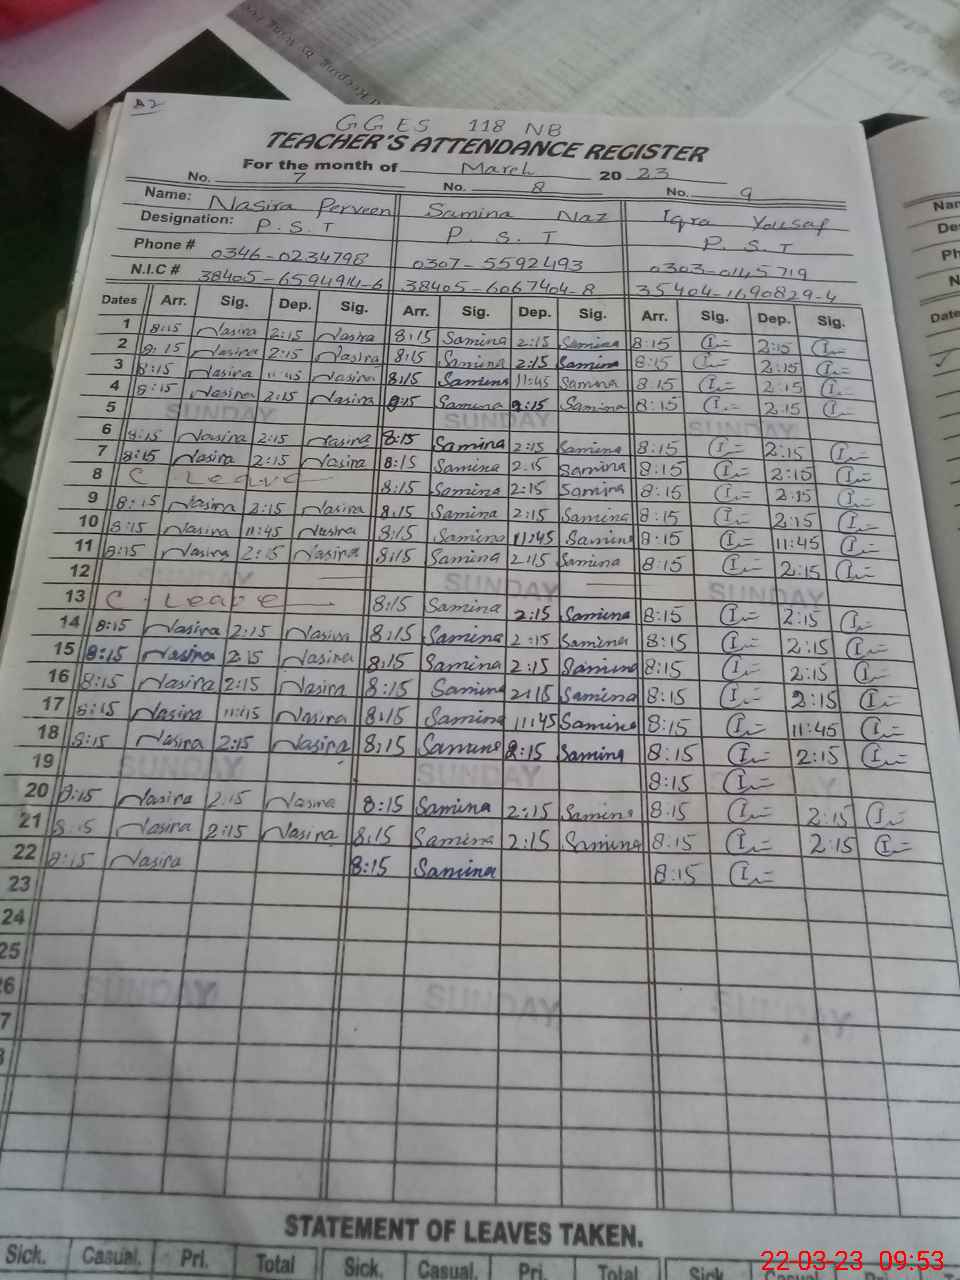 A2
GGES 118 NB
TEACHER'S ATTENDANCE REGISTER
For the month of March 20 23
No. 7 No. 8 No. 9
Name: Nasira Perveen Samina Naz Iqra Yousaf
Designation: P.S.T P. S. T P. S. T
Phone # 0346-0234798 0307-5592493 0303-0145719
N.I.C # 38405-6594914-6 38405-6067404-8 35404-1690829-4
Dates Arr. Sig. Dep. Sig. Arr. Sig. Dep. Sig. Arr. Sig. Dep. Sig.
1 8:15 Nasira 2:15 Nasira 8:15 Samina 2:15 Samina 8:15 2:15
2 8:15 Nasira 2:15 Nasira 8:15 Samina 2:15 Samina 8:15 2:15
3 8:15 Nasira 11:45 Nasira 8:15 Samina 11:45 Samina 8:15 2:15
4 8:15 Nasira 2:15 Nasira 8:15 Samina 2:15 Samina 8:15 2:15
5 SUNDAY SUNDAY SUNDAY
6 8:15 Nasira 2:15 Nasira 8:15 Samina 2:15 Samina 8:15 2:15
7 8:15 Nasira 2:15 Nasira 8:15 Samina 2:15 Samina 8:15 2:15
8 C Leave 8:15 Samina 2:15 Samina 8:15 2:15
9 8:15 Nasira 2:15 Nasira 8:15 Samina 2:15 Samina 8:15 2:15
10 8:15 Nasira 11:45 Nasira 8:15 Samina 11:45 Samina 8:15 11:45
11 8:15 Nasira 2:15 Nasira 8:15 Samina 2:15 Samina 8:15 2:15
12 SUNDAY SUNDAY SUNDAY
13 C. Leave 8:15 Samina 2:15 Samina 8:15 2:15
14 8:15 Nasira 2:15 Nasira 8:15 Samina 2:15 Samina 8:15 2:15
15 8:15 Nasira 2:15 Nasira 8:15 Samina 2:15 Samina 8:15 2:15
16 8:15 Nasira 2:15 Nasira 8:15 Samina 2:15 Samina 8:15 2:15
17 8:15 Nasira 11:45 Nasira 8:15 Samina 11:45 Samina 8:15 11:45
18 8:15 Nasira 2:15 Nasira 8:15 Samina 2:15 Samina 8:15 2:15
19 SUNDAY SUNDAY 8:15 SUNDAY
20 8:15 Nasira 2:15 Nasira 8:15 Samina 2:15 Samina 8:15 2:15
21 8:15 Nasira 2:15 Nasira 8:15 Samina 2:15 Samina 8:15 2:15
22 8:15 Nasira 8:15 Samina 8:15
23
24
25
26 SUNDAY SUNDAY SUNDAY
7
STATEMENT OF LEAVES TAKEN.
Sick. Casual. Pri. Total Sick. Casual. Pri. Total Sick
22-03-23 09:53